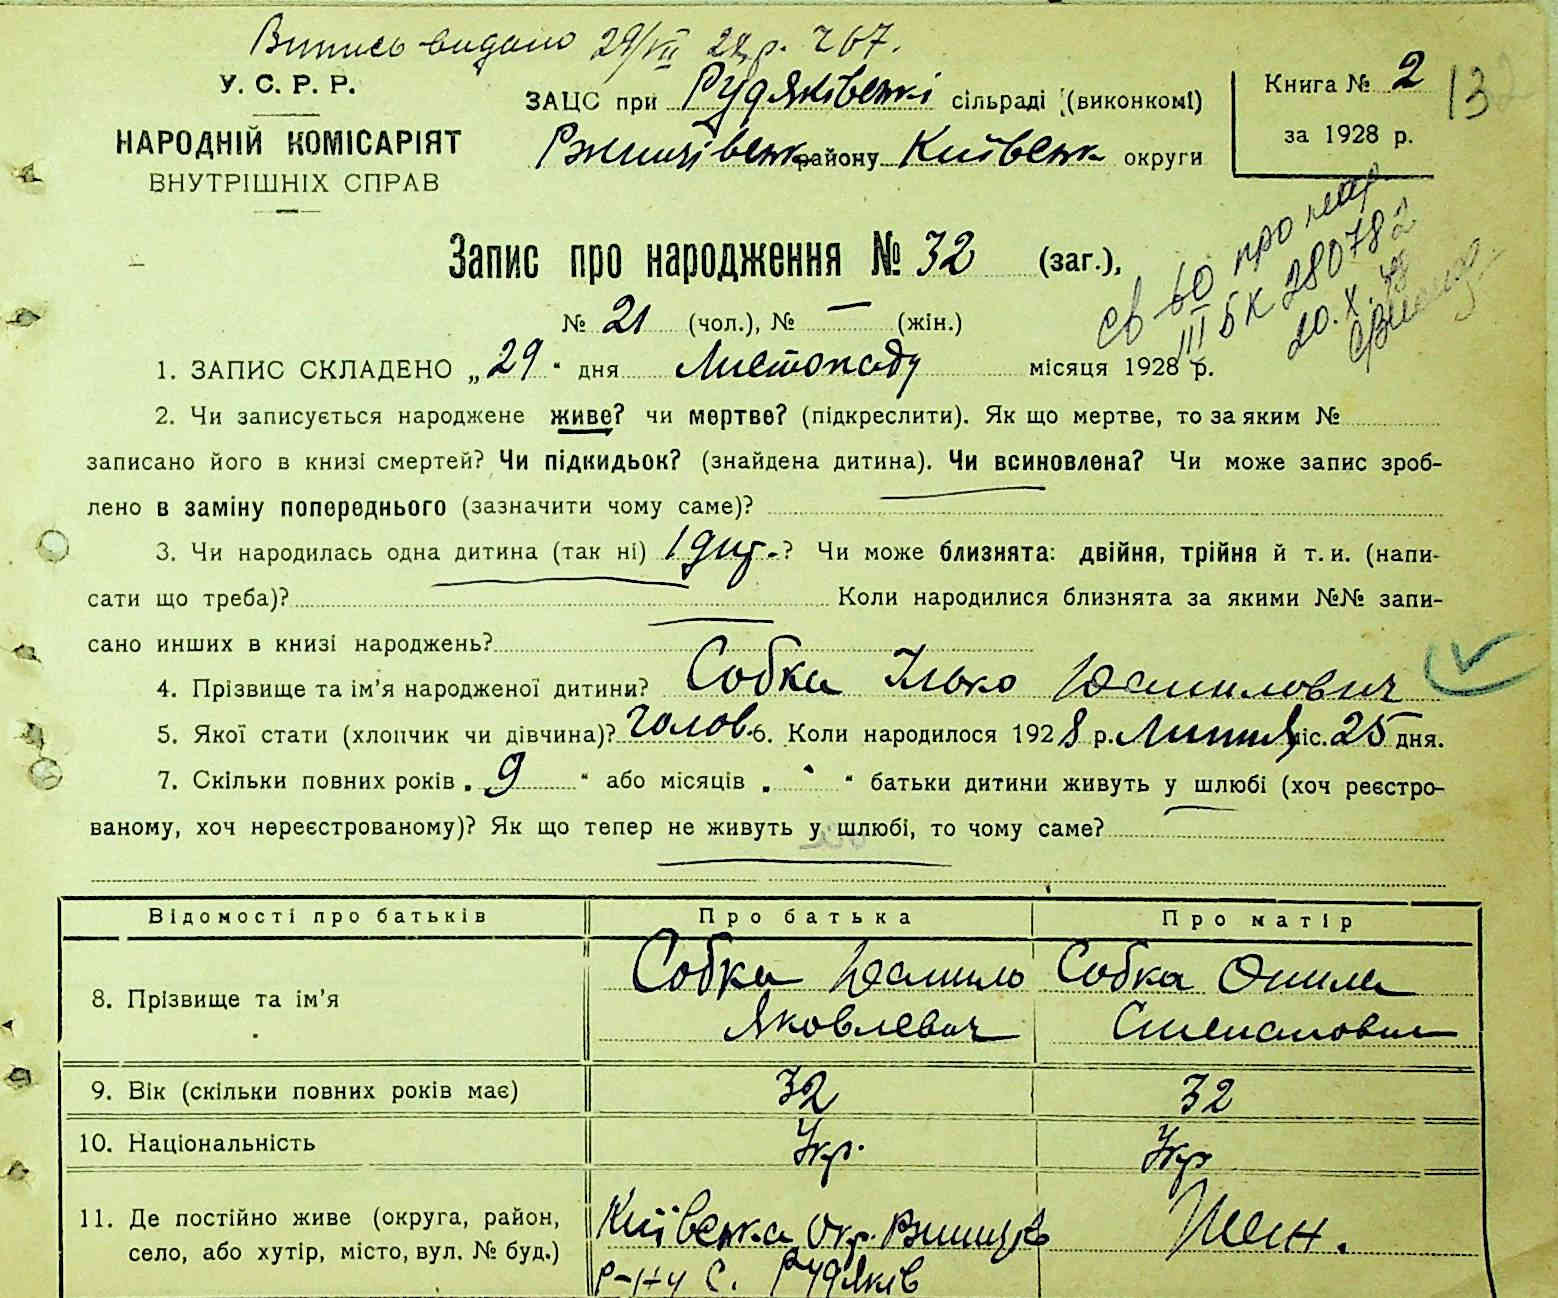 Випись видано 29/VII 28 р. 767.
У. С. Р. Р.
НАРОДНІЙ КОМІСАРІЯТ
ВНУТРІШНІХ СПРАВ
ЗАЦС при Рудяківські сільраді (виконкомі)
Ржищівськ району Київськ округи
Книга № 2
за 1928 р.
13
Запис про народження № 32 (заг.),
№ 21 (чол.), № — (жін.)
III БК 280782
20.X.
1. ЗАПИС СКЛАДЕНО „29“ дня Листопаду місяця 1928 р.
2. Чи записується народжене живе? чи мертве? (підкреслити). Як що мертве, то за яким №
записано його в книзі смертей? Чи підкидьок? (знайдена дитина). Чи всиновлена? Чи може запис зроб-
лено в заміну попереднього (зазначити чому саме)?
3. Чи народилась одна дитина (так ні) 1 дит.? Чи може близнята: двійня, трійня й т. и. (напи-
сати що треба)? Коли народилися близнята за якими №№ запи-
сано инших в книзі народжень?
4. Прізвище та ім’я народженої дитини? Собка Ілько Данилович
5. Якої стати (хлопчик чи дівчина)? чолов. 6. Коли народилося 1928 р. Липня міс. 25 дня.
7. Скільки повних років „9“ або місяців „ “ батьки дитини живуть у шлюбі (хоч реєстро-
ваному, хоч нереєстрованому)? Як що тепер не живуть у шлюбі, то чому саме?
Відомості про батьків Про батька Про матір
8. Прізвище та ім’я Собка Данило Яковлевич Собка Степановна
9. Вік (скільки повних років має) 32 32
10. Національність Укр. Укр
11. Де постійно живе (округа, район, Київська Окр. Ржищів
село, або хутір, місто, вул. № буд.) р-ну с. Рудяків